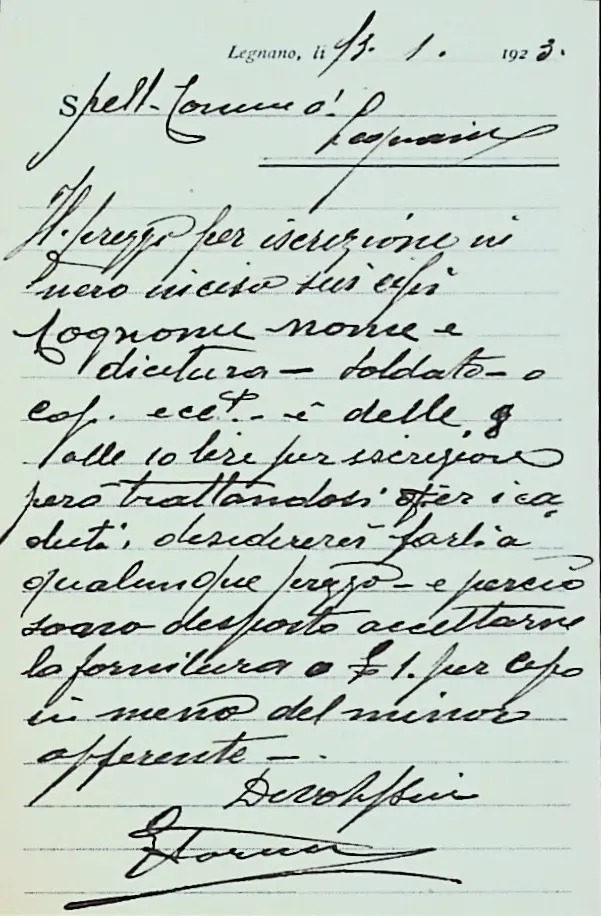 Legnano, li 13. 1. 1923.
Spell. Comune d!
Legnano
Il prezzo per iscrizione in
nero inciso sui cipi
Cognome nome e
dicitura — soldato — o
cap. ecc. - è delle 9
alle 10 lire per iscrizione
però trattandosi per i ca
duti, desidererei farli a
qualunque prezzo — e perciò
sono disposto accettarne
la fornitura a £ 1. per cipo
in meno del minor
offerente —.